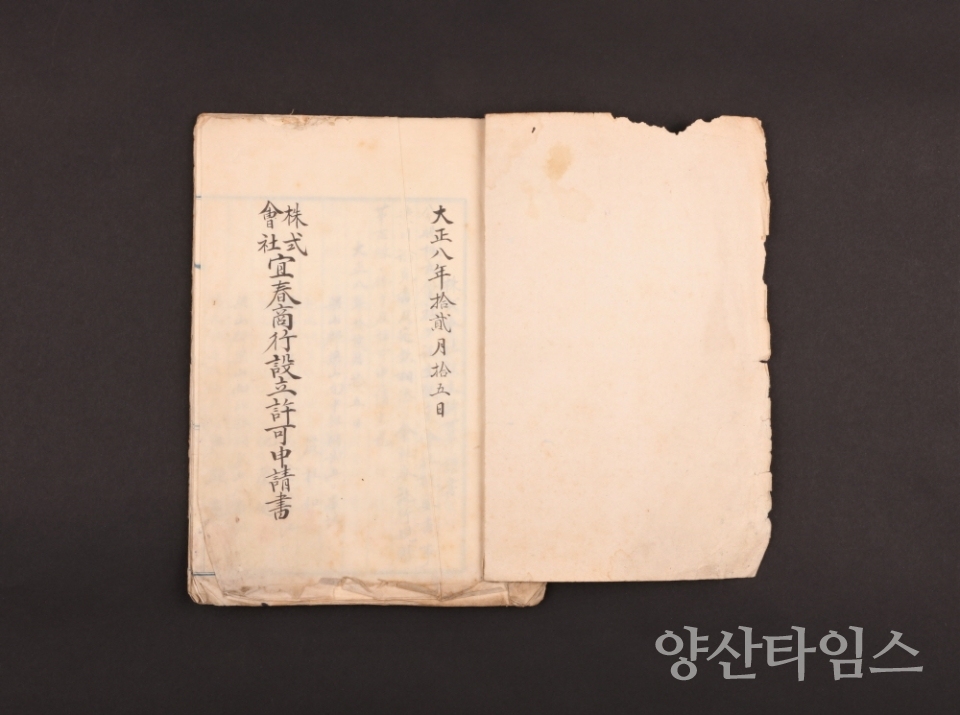 大正八年拾貳月拾五日
株式會社宜春商行設立許可申請書
양산타임스